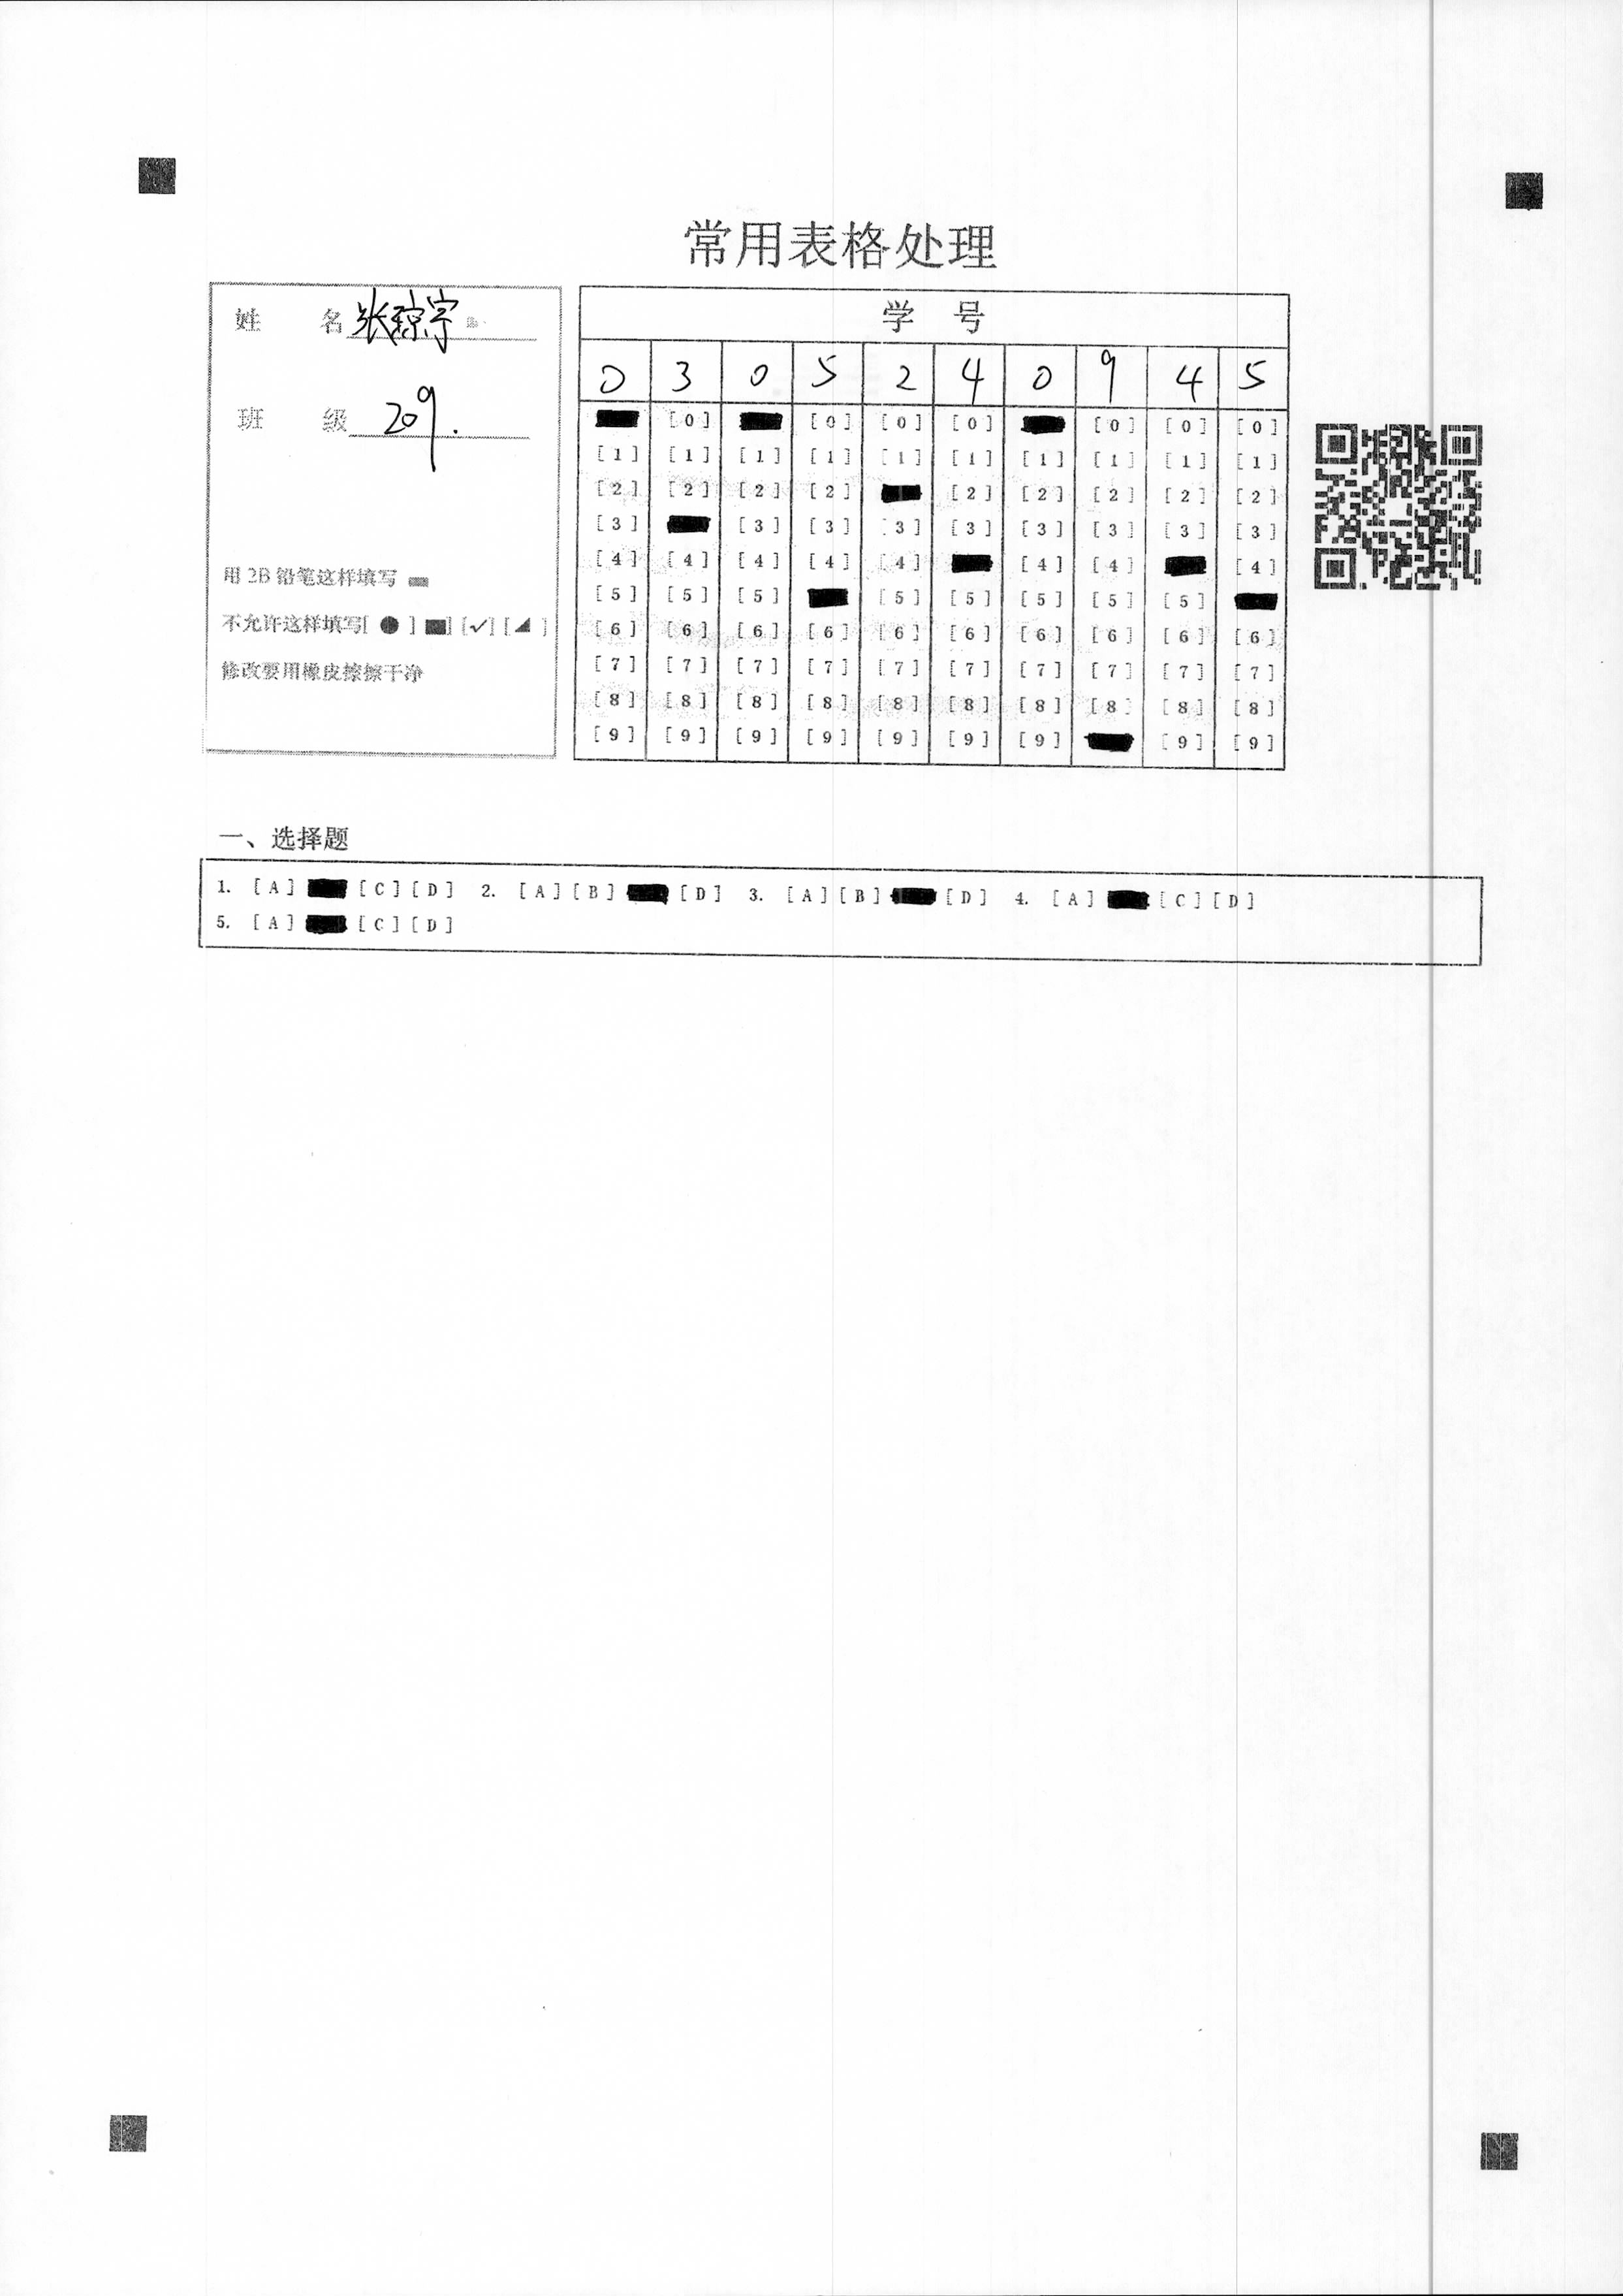 常用表格处理
姓 名 张琼宇
班 级 209.
用 2B 铅笔这样填写
不允许这样填写[ ● ] ■] [✓] [◢ ]
修改要用橡皮擦擦干净
学 号
0 3 0 5 2 4 0 9 4 5
[0] [0] [0] [0] [0] [0] [0]
[1] [1] [1] [1] [1] [1] [1] [1] [1] [1]
[2] [2] [2] [2] [2] [2] [2] [2] [2]
[3] [3] [3] [3] [3] [3] [3] [3] [3]
[4] [4] [4] [4] [4] [4] [4] [4]
[5] [5] [5] [5] [5] [5] [5] [5]
[6] [6] [6] [6] [6] [6] [6] [6] [6] [6]
[7] [7] [7] [7] [7] [7] [7] [7] [7] [7]
[8] [8] [8] [8] [8] [8] [8] [8] [8] [8]
[9] [9] [9] [9] [9] [9] [9] [9] [9]
一、选择题
1. [A] [C] [D] 2. [A] [B] [D] 3. [A] [B] [D] 4. [A] [C] [D]
5. [A] [C] [D]